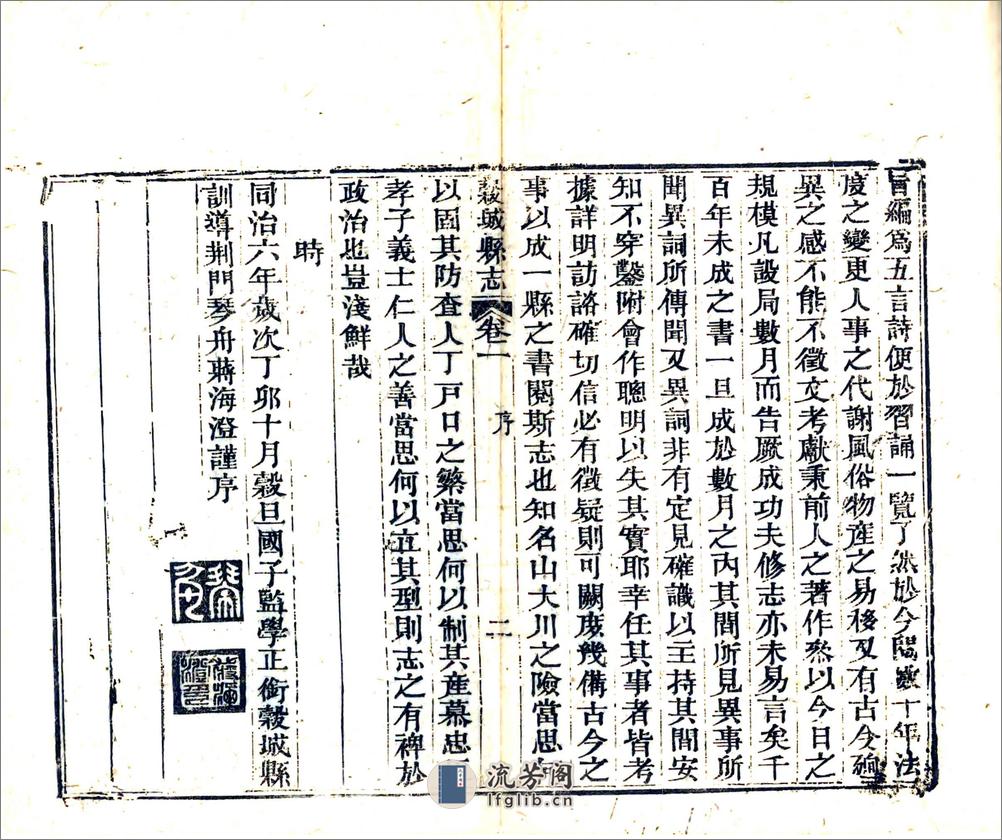 編爲五言詩便於習誦一覽了然於今閱數十年法
度之變更人事之代謝風俗物產之易移又有古今殊
異之感不能不徵文考獻秉前人之著作叅以今日之
規模凡設局數月而告厥成功夫修志亦未易言矣千
百年未成之書一旦成於數月之內其間所見異事所
聞異詞所傳聞又異詞非有定見確識以主持其間安
知不穿鑿附會作聰明以失其實耶幸任其事者皆考
據詳明訪諮確切信必有徵疑則可闕庶幾備古今之
事以成一縣之書閱斯志也知名山大川之險當思
穀城縣志 卷一 序 二
以固其防查人丁戸口之繁當思何以制其產慕忠
孝子義士仁人之善當思何以宜其型則志之有裨於
政治也豈淺鮮哉
時
同治六年歲次丁卯十月穀旦國子監學正銜穀城縣
訓導荆門琴舟蔣海澄謹序
琴舟
蔣海澄印
流芳阁
lfglib.cn